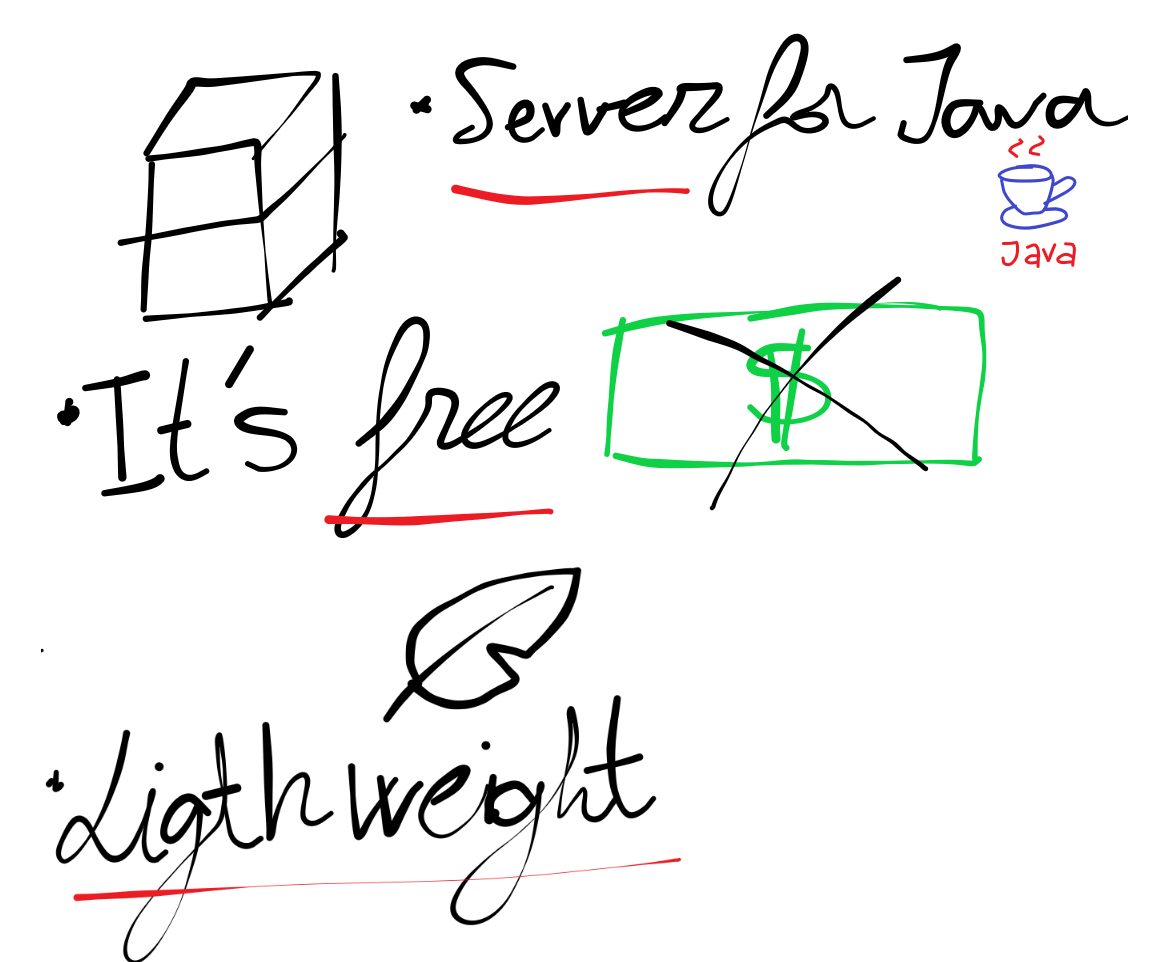 • Server for Java
Java
• It's free
$
• Ligth weight